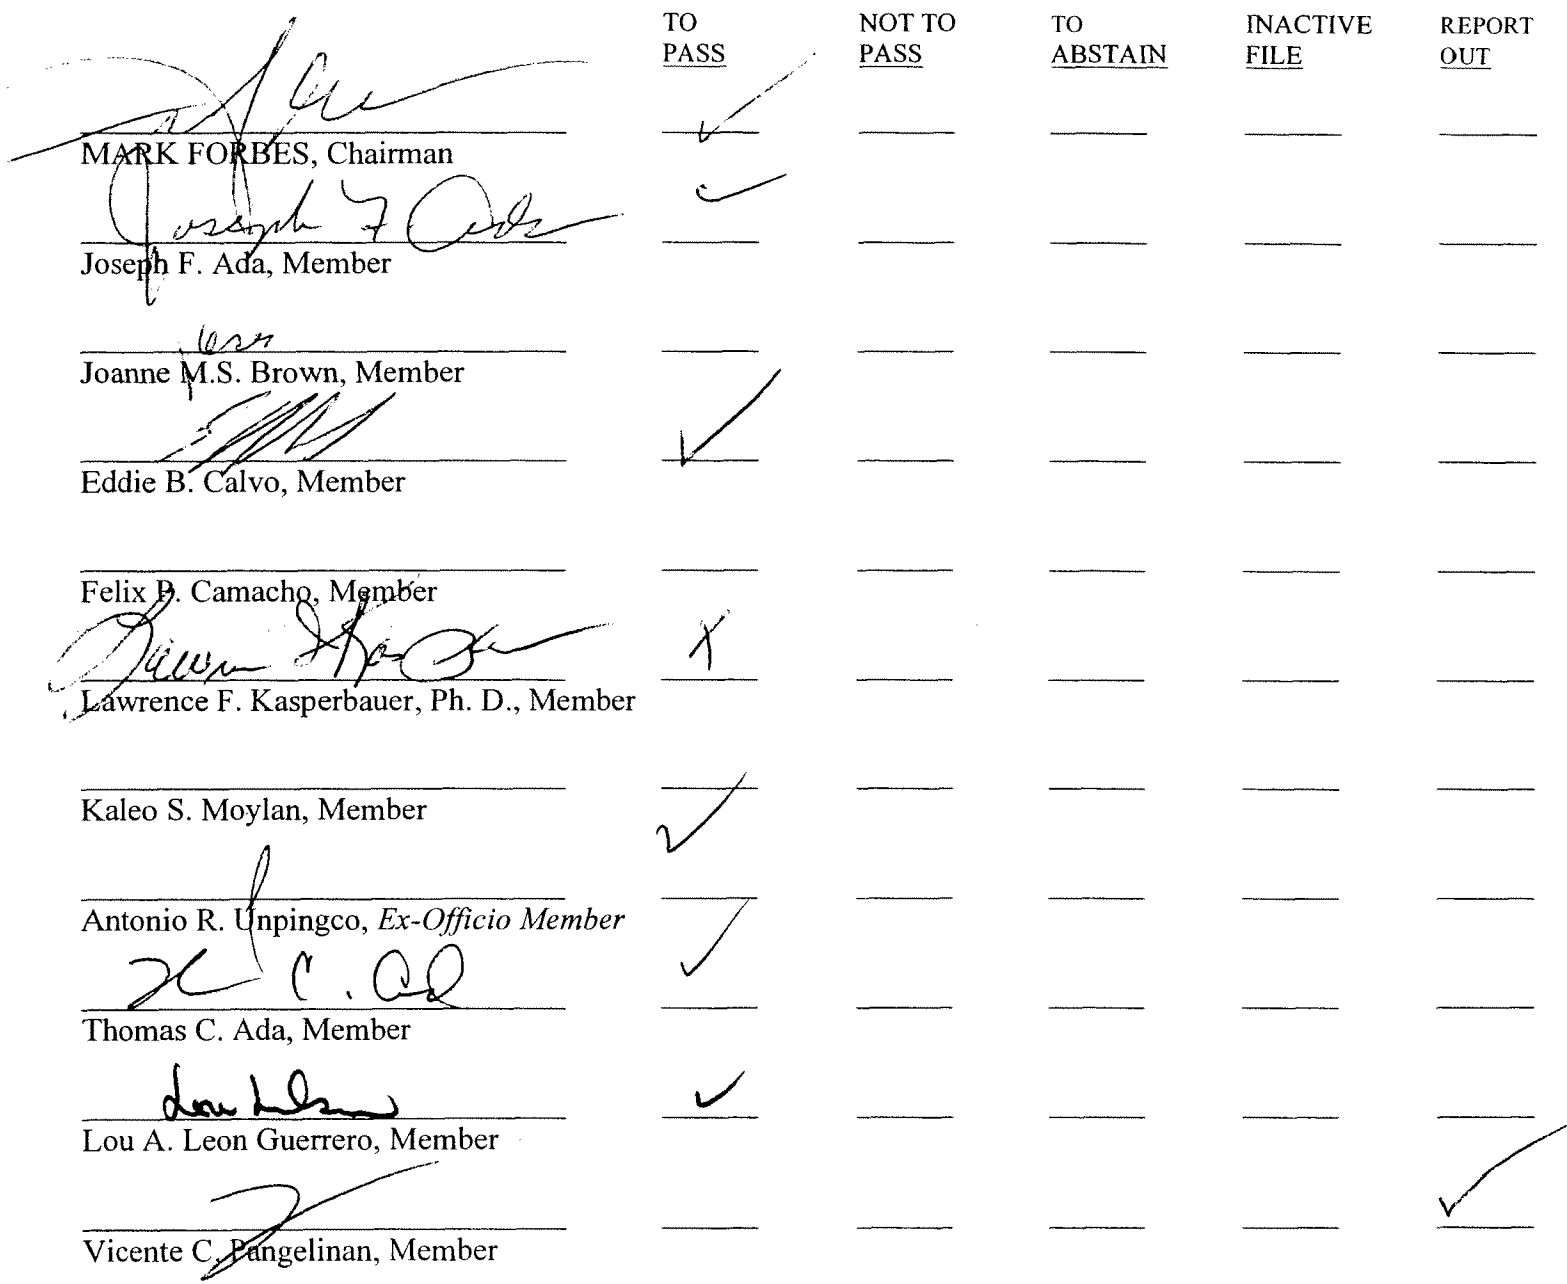 TO PASS NOT TO PASS TO ABSTAIN INACTIVE FILE REPORT OUT
MARK FORBES, Chairman
Joseph F Ada
Joseph F. Ada, Member
Joanne M.S. Brown, Member
Eddie B. Calvo, Member
Felix P. Camacho, Member
Lawrence F. Kasperbauer, Ph. D., Member
Kaleo S. Moylan, Member
Antonio R. Unpingco, Ex-Officio Member
Thomas C. Ada, Member
Lou A. Leon Guerrero, Member
Vicente C. Pangelinan, Member